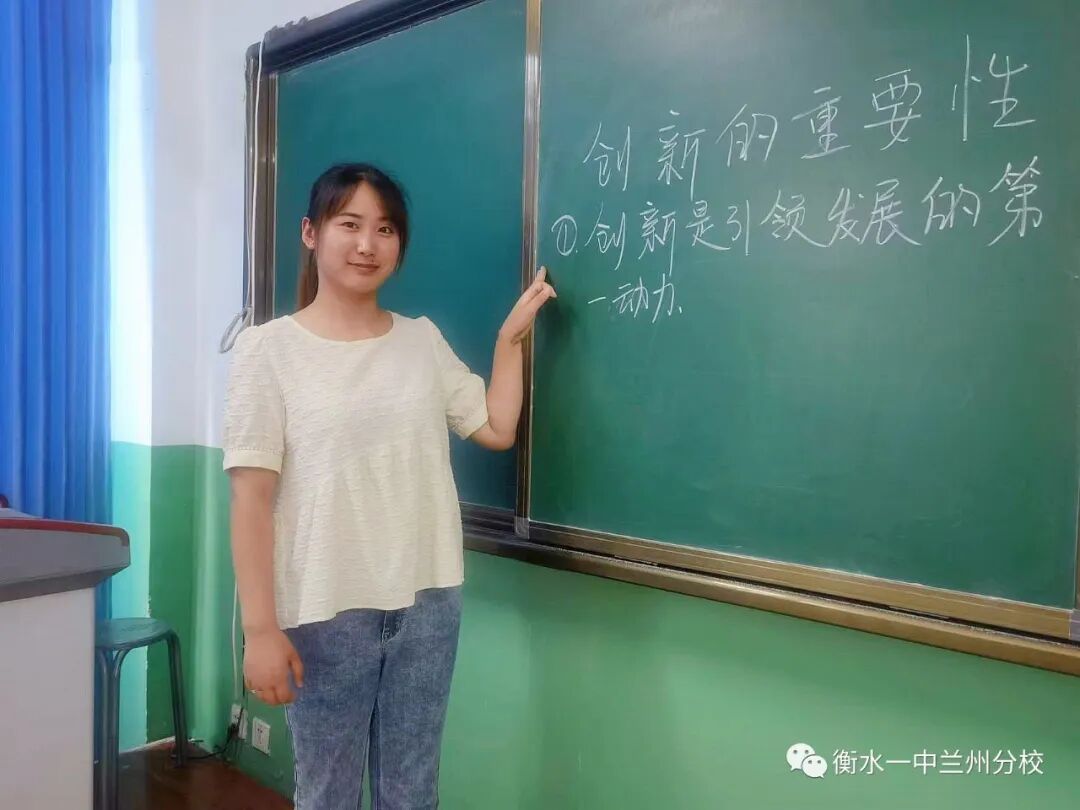 创新的重要性
①.创新是引领发展的第
一动力.
衡水一中兰州分校